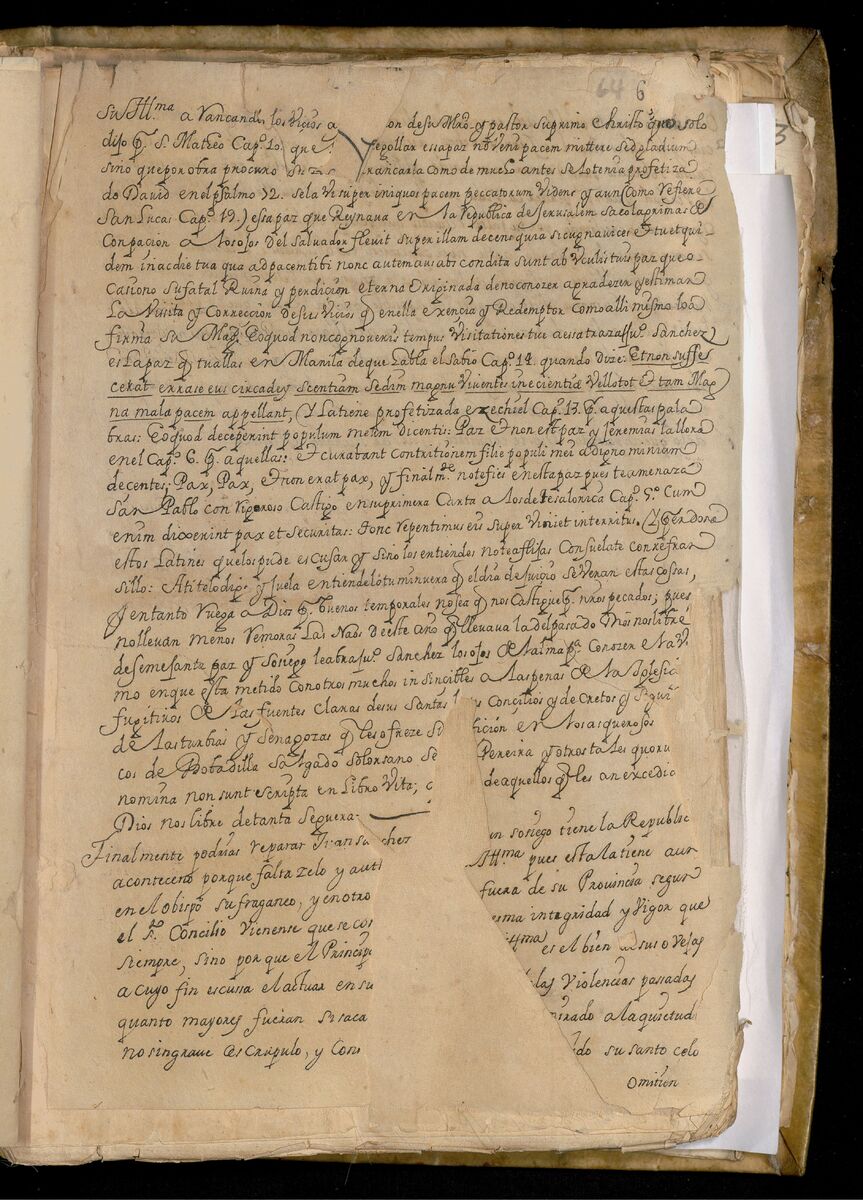 64 6
Su Ill.ma a Vancandu los Vicios a on de su Mro. y pastor supremo Christo que solo
dijo p.r S. Matheo Cap.o 10. que repollar essa paz no veni pacem mittere sed gladium
sino que por obra procuro rrancarla como de mucho antes se lo tenia profetiza
do David en el psalmo 72. sela vi super iniquos pacem peccatorum videns y aun (como refiere
San Lucas Cap.o 19.) essa paz que Reynava en la Republica de Jerusalem saco lagrimas de
Conpacion a los ojos del Salvador flevit super illam decens quia si cognavices et tu et qui
dem in ac die tua qua ad pacem tibi nonc autem aus abscondita sunt ab oculis tuis paz que o
casiono su fatal Ruina y perdicion eterna Originada de no conozer apradezer y estimar
La Visita y Correccion de sus Vicios q en ella exercia y Redemptor como alli mesmo lo a
firma su Mag.d Eo quod non cognoveris tempus Visitationes tue a essa traza su.r Sanchez
es La paz q tu allas en Manila de que habla el sabio Cap.o 14. quando dize: Et non suffe
cerat errase eus circa dey scentiam sed im magnu viventes inscientiæ Vellotot et tam Mag
na mala pacem appellant, (Y La tiene profetizada ezechiel Cap.o 13. p.r aquestas pala
bras: Eo quod deceperint populum meum dicentis: Paz et non est paz y Jeremias la llora
en el Cap.o 6. p.r aquellas: et curabant Contritionem filie populi mei ad igno miniam
decentes: Pax, Pax, et non erat pax, y finalm.te note fies en esta paz pues te amenaza
San Pablo con rigoroso Castigo en su primera Carta a los de tesalonica Cap.o 5.o Cum
enim dixerint pax et securitas: tonc repentimus eis super viniet interritus. (Y perdona
estos Latines que los pude escusar y si no los entiendes no te aflijas Consuelate con refran
sillo: A ti te lo digo y Juela entiendelo tu mi nuera q el dia de juicio se veran estas cossas,
Jentanto ruega a Dios p.r buenos temporales no sea q nos Castigue p.r nros pecados, pues
no llevan menos remoras las Naos de este año q llevava la del pasado Dios nos libre
de semejante paz y sosiego le abra su.r Sanchez los ojos de la alma p.a Conozer el a v.
mo en que esta metido con otros muchos insincibles a las penas de la Iglesia
fugitivos de las fuentes claras de sus Santos Concilios y decretos y
de las turbias y senagozas q les ofreze ficion en los asquerosos
cos de Bobadilla Salgado Solorsano Se Pereira y otros tales quoru
nomina non sunt escripta en Libro Vita; de aquellos q les an excedio
Dios nos libre de tanta seguera.
Finalmente podrias reparar Juan Sanchez un sosiego tiene la Republic
aconteceno porque falta zelo y aut Ill.ma pues esta la tiene aun
en el obispo sufraganeo, y en otro fuera de su Provincia segun
el S.to Concilio Vienense que se cos esma integridad y Vigor que
siempre, sino por que el Princip Ill.ma es el bien de sus ovejas
a cuyo fin escussa el actuar en su las Violencias passadas
quanto mayores fueran si saca mirado a la quietud
no sin grave escrupulo, y Cons do su santo celo
Omition